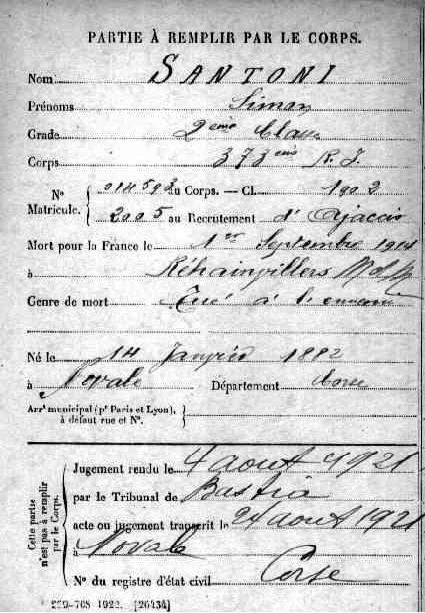 PARTIE À REMPLIR PAR LE CORPS.
Nom SANTONI
Prénoms Simon
Grade 2eme Classe
Corps 373eme R. I.
N° Matricule. { 014592 au Corps. — Cl. 1902
2005 au Recrutement d'Ajaccio
Mort pour la France le 1er Septembre 1914
à Réhainvillers M et M
Genre de mort Tué à l'ennemi
Né le 14 Janvier 1882
à Novale Département Corse
Arrt municipal (pr Paris et Lyon), à défaut rue et N°. }
Cette partie n'est pas à remplir par le Corps.
Jugement rendu le 4 aout 1921
par le Tribunal de Bastia
acte ou jugement transcrit le 24 aout 1921
à Novale
Corse
N° du registre d'état civil
[26434]